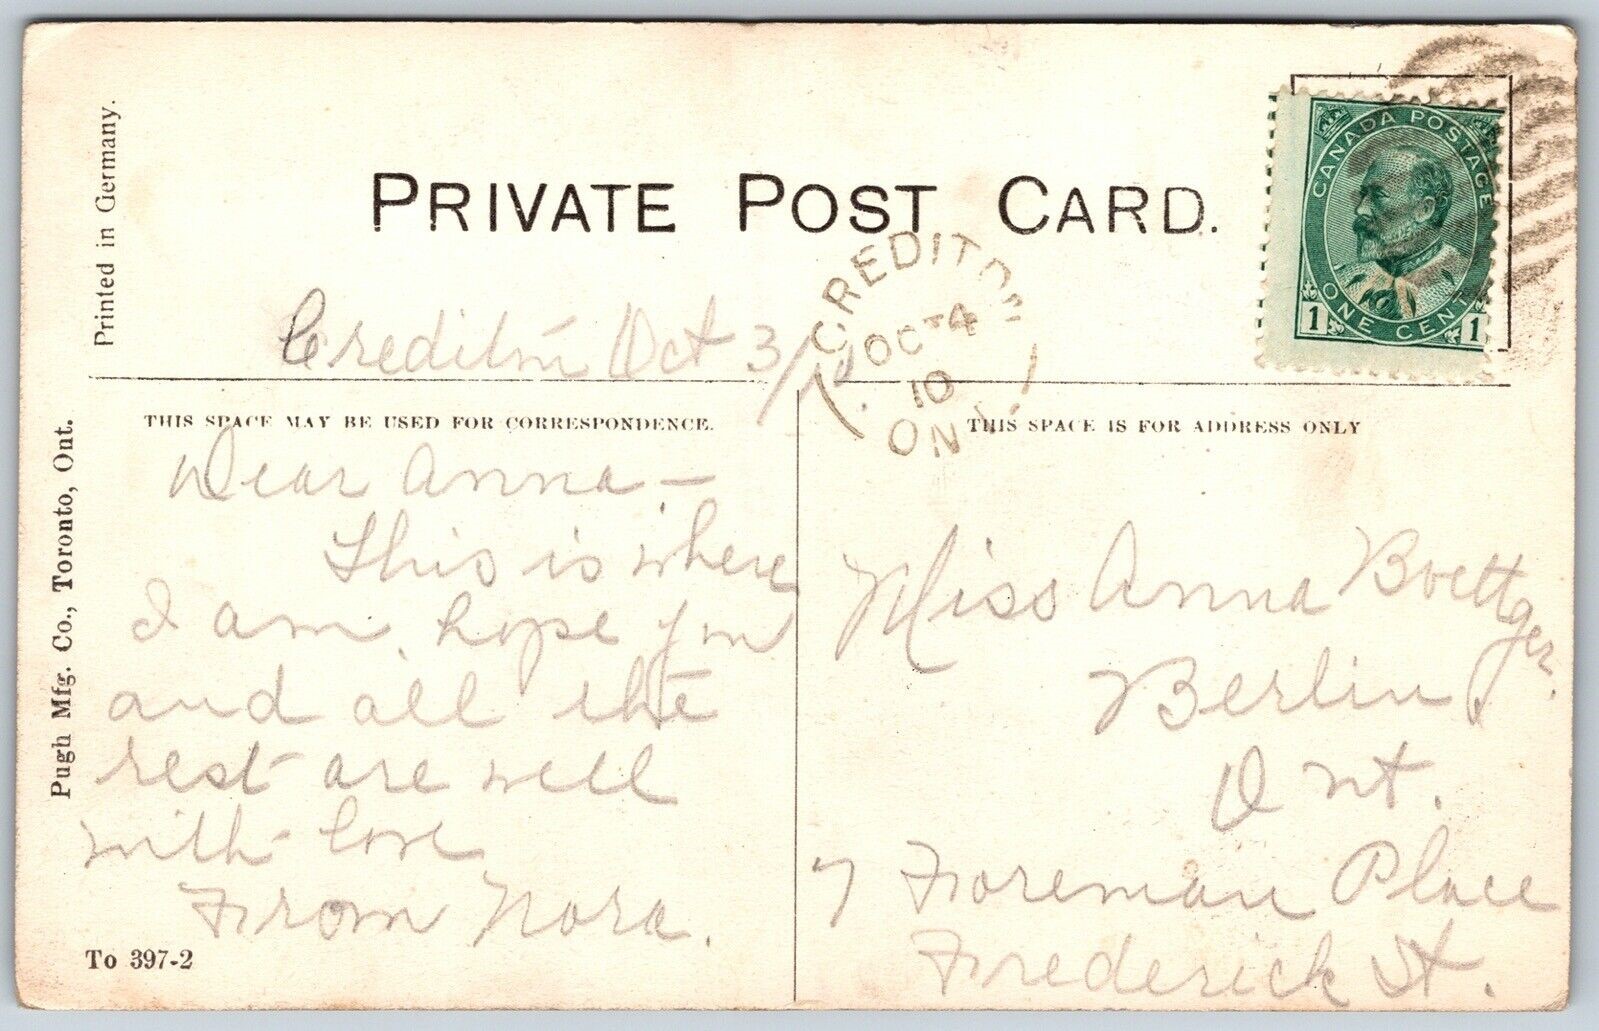 Printed in Germany.
PRIVATE POST CARD.
CANADA POSTAGE
ONE CENT
1 1
CREDITON
OC 4
10
ONT.
Crediton Oct 3/10
THIS SPACE MAY BE USED FOR CORRESPONDENCE.
THIS SPACE IS FOR ADDRESS ONLY
Pugh Mfg. Co., Toronto, Ont.
Dear Anna —
This is where
I am, hope you
and all the
rest are well
with love
From Nora.
Miss Anna Boettger.
Berlin,
Ont.
7 Foreman Place
Frederick St.
To 397-2